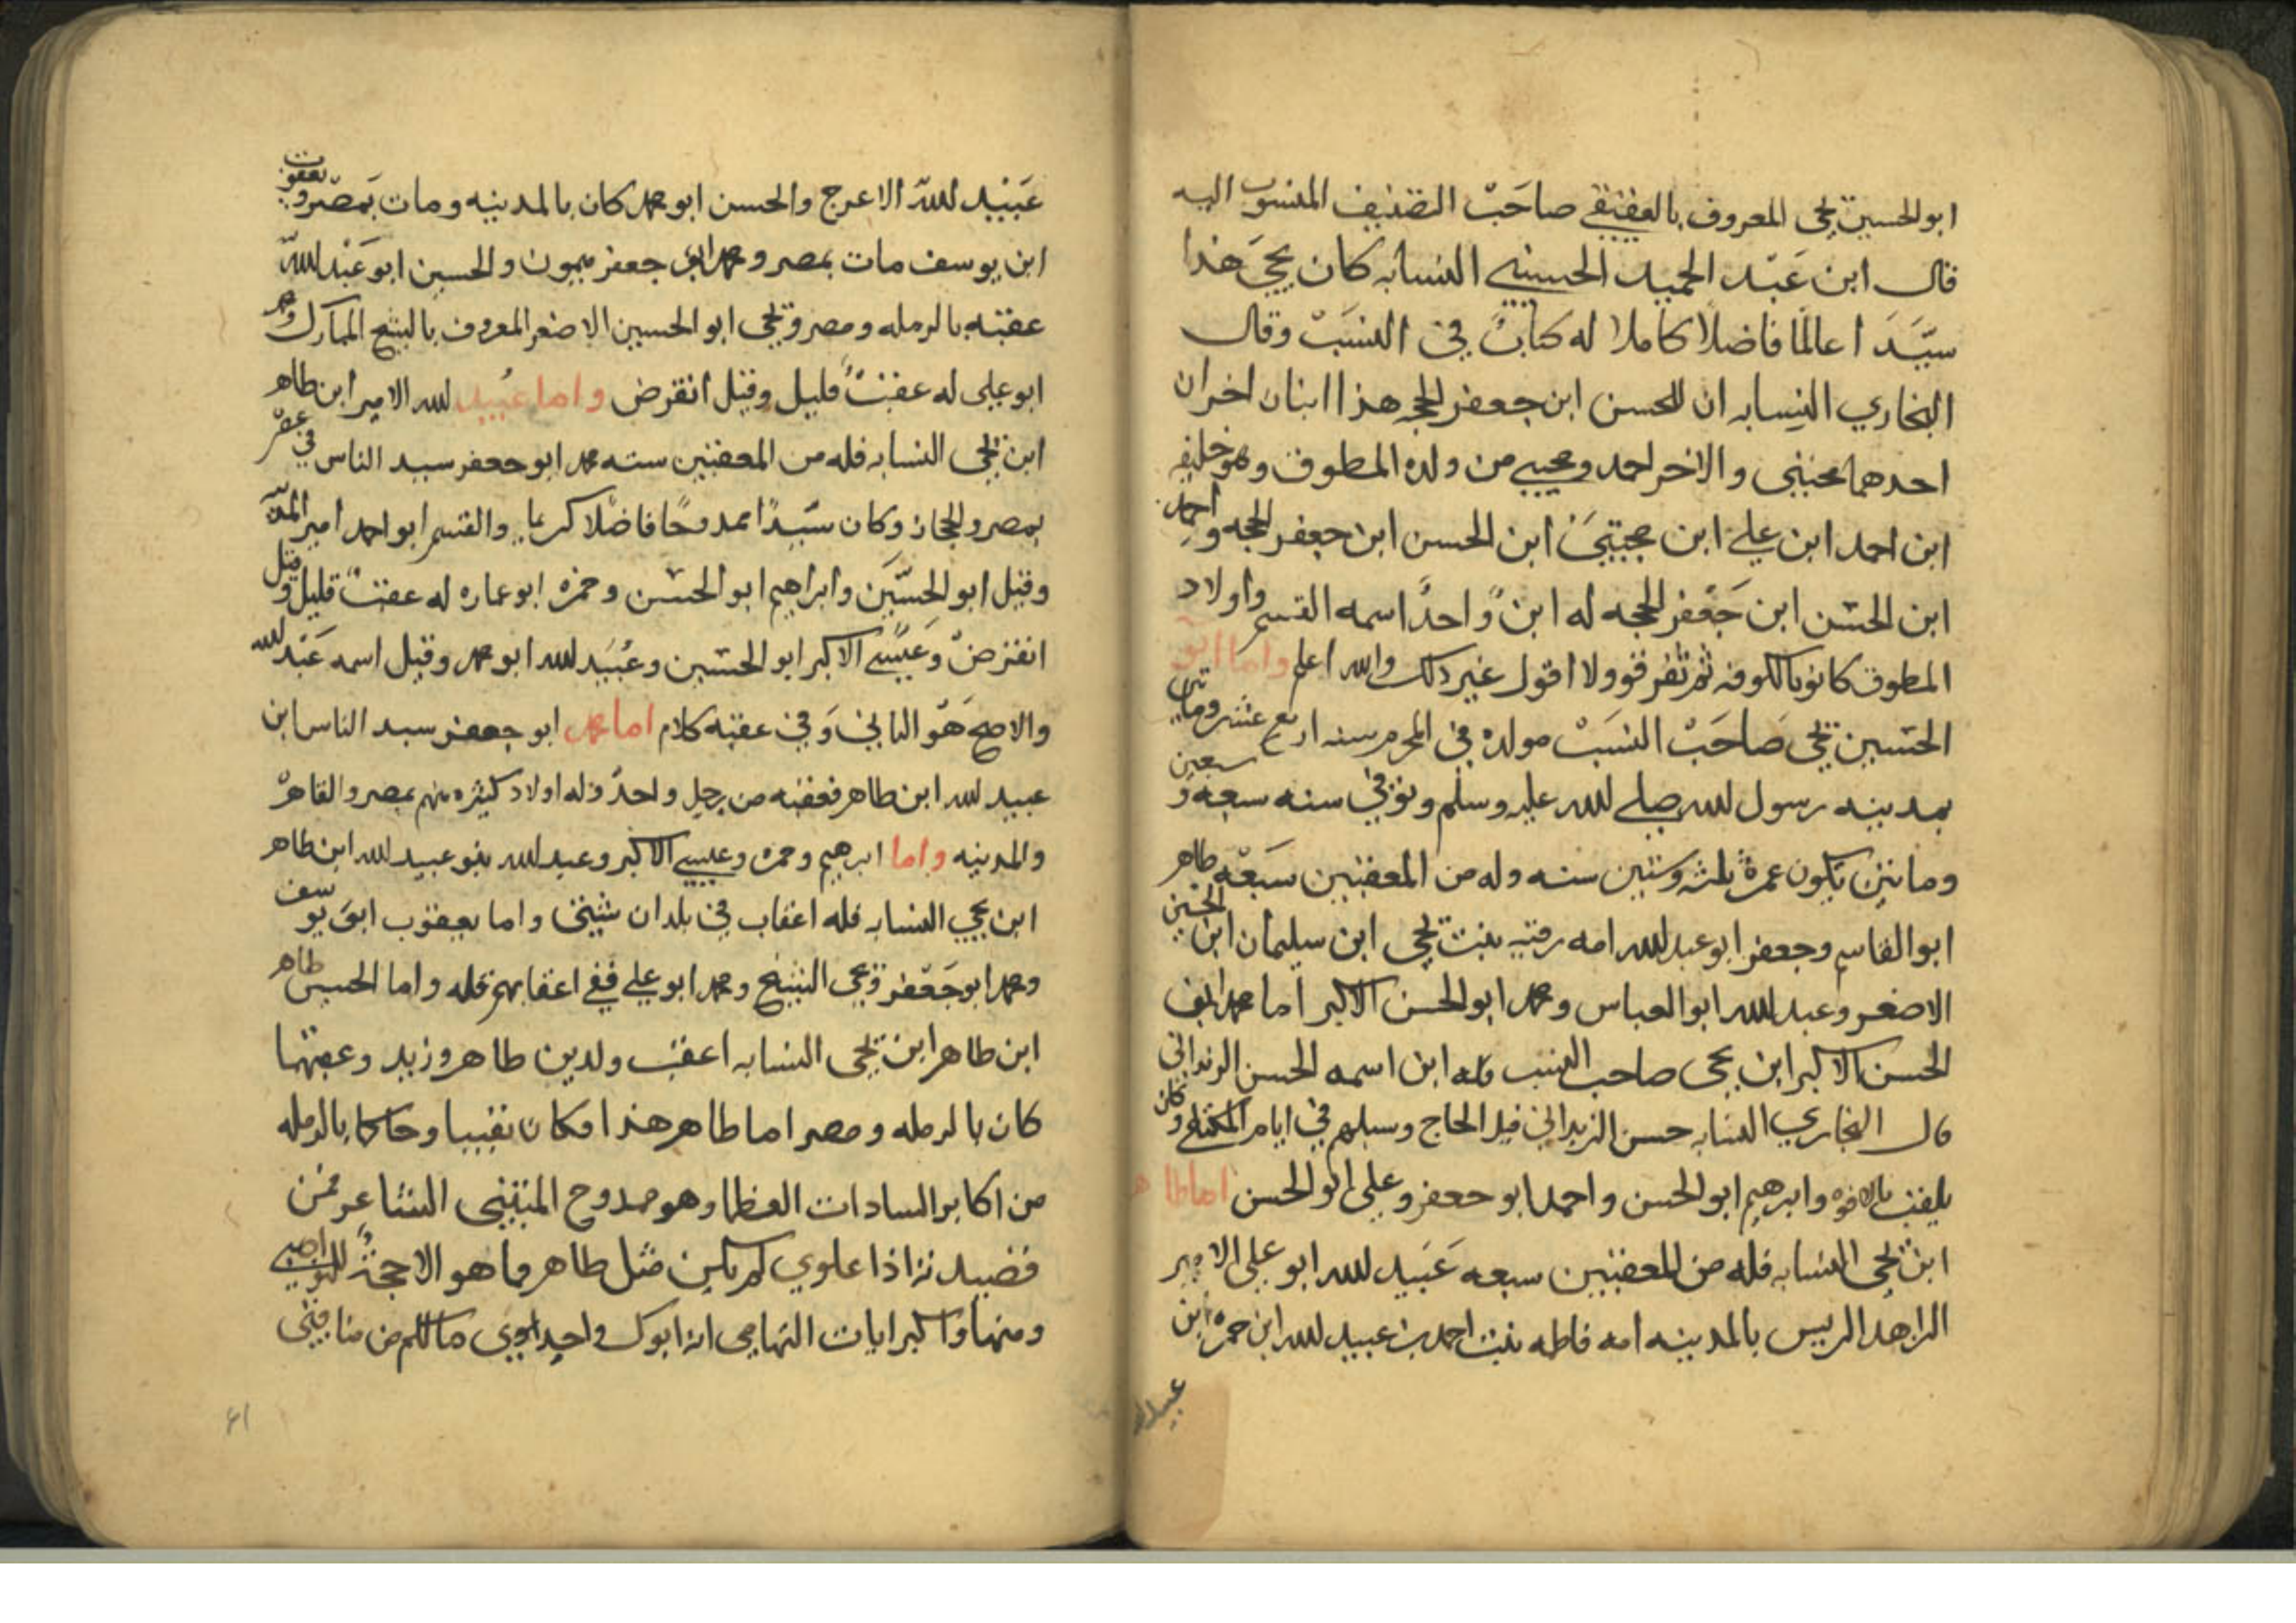 ابو الحسين يحيى المعروف بالعقيقي صاحب التصنيف المنسوب اليه
قال ابن عبد الحميد الحسيني النسابه كان يحيى هذا
سيدا عالمًا فاضلًا كاملا له كتاب في النسب وقال
البخاري النسابه ان للحسن ابن جعفر الحجه هذا ابنان اخران
احدهما مجتبى والاخر احمد ومجيبي من ولده المطوف وهو خليفه
ابن احمد ابن علي ابن مجتبى ابن الحسن ابن جعفر الحجه واحمد
ابن الحسن ابن جعفر الحجه له ابن واحدًا اسمه القسم واولاد
المطوف كانو بالكوفه ثم تفرقو ولا اقول غير ذلك والله اعلم واما ابو
الحسين يحيى صاحب النسب مولده في المحرم سنه اربع عشر وماتين
بمدينه رسول لله صلى لله عليه وسلم وتوفي سنه سبعه و سبعين
وماتين يكون عمره ثلثه وستين سنه وله من المعقبين سبعه طاهر
ابو القاسم وجعفر ابو عبد لله امه رقيه بنت يحيى ابن سليمان ابن الحسين
الاصغر وعبد لله ابو العباس ومحمد ابو الحسن الاكبر اما محمد ابو
الحسن الاكبر ابن يحيى صاحب النسب فله ابن اسمه الحسن
قال البخاري النسابه حسن قبل الحاج وسبلهم في ايام وكان
يلقب بالافوه وابرهيم ابو الحسن واحمد ابو جعفر وعلى ابو الحسن اما طاهر
ابن يحيى النسابه فله من المعقبين سبعه عبيد لله ابو على الامير
الزاهد الريس بالمدينه امه فاطمه بنت احمد بن عبيد لله ابن حمزه ابن
عبيد لله
عبيد لله الاعرج والحسن ابو محمد كان بالمدينه ومات بمصر ويعقوب
ابن يوسف مات بمصر ومحمد ابو جعفر ميمون والحسين ابو عبد لله
عقبه بالرمله ومصر ويحيى ابو الحسين الاصغر المعروف بالشيخ المبارك ومحمد
ابو على له عقب قليل وقيل انقرض واما عبيد لله الامير ابن طاهر
ابن يحيى النسابه فله من المعقبين سته محمد ابو جعفر سيد الناس في عقر
بمصر والحجاز وكان سيدًا ممدوحًا فاضلا كريما والقسم ابو احمد امير المدينه
وقيل ابو الحسين وابراهيم ابو الحسن وحمزه ابو عماره له عقب قليل وقيل
انقرض وعيسى الاكبر ابو الحسين وعبيد لله ابو محمد وقيل اسمه عبد لله
والاصح هو الثاني وفي عقبه كلام اما محمد ابو جعفر سيد الناس ابن
عبيد لله ابن طاهر فعقبه من رجل واحد وله اولاد كثيره منهم بمصر والقاهر
والمدينه واما ابرهيم وحمزه وعيسى الاكبر وعبد لله بنو عبيد لله ابن طاهر
ابن يحيى النسابه فله اعقاب في بلدان شتى واما يعقوب ابو يوسف
ومحمد ابو جعفر ويحيى الشيخ ومحمد ابو علي ففي اعقابهم قله واما الحسين طاهر
ابن طاهر ابن يحيى النسابه اعقب ولدين طاهر وزيد وعقبهما
كان بالرمله ومصر اما طاهر هذا فكان نقيبا وحاكما بالرمله
من اكابر السادات العظما وهو ممدوح المتنبي الشاعر فمن
قصيدته اذا علوي لم يكن مثل طاهر فما هو الا حجة للنواصب
ومنها واكبر ايات التهامي انه ابوك واجدادى مالكم من مناقب
٤١